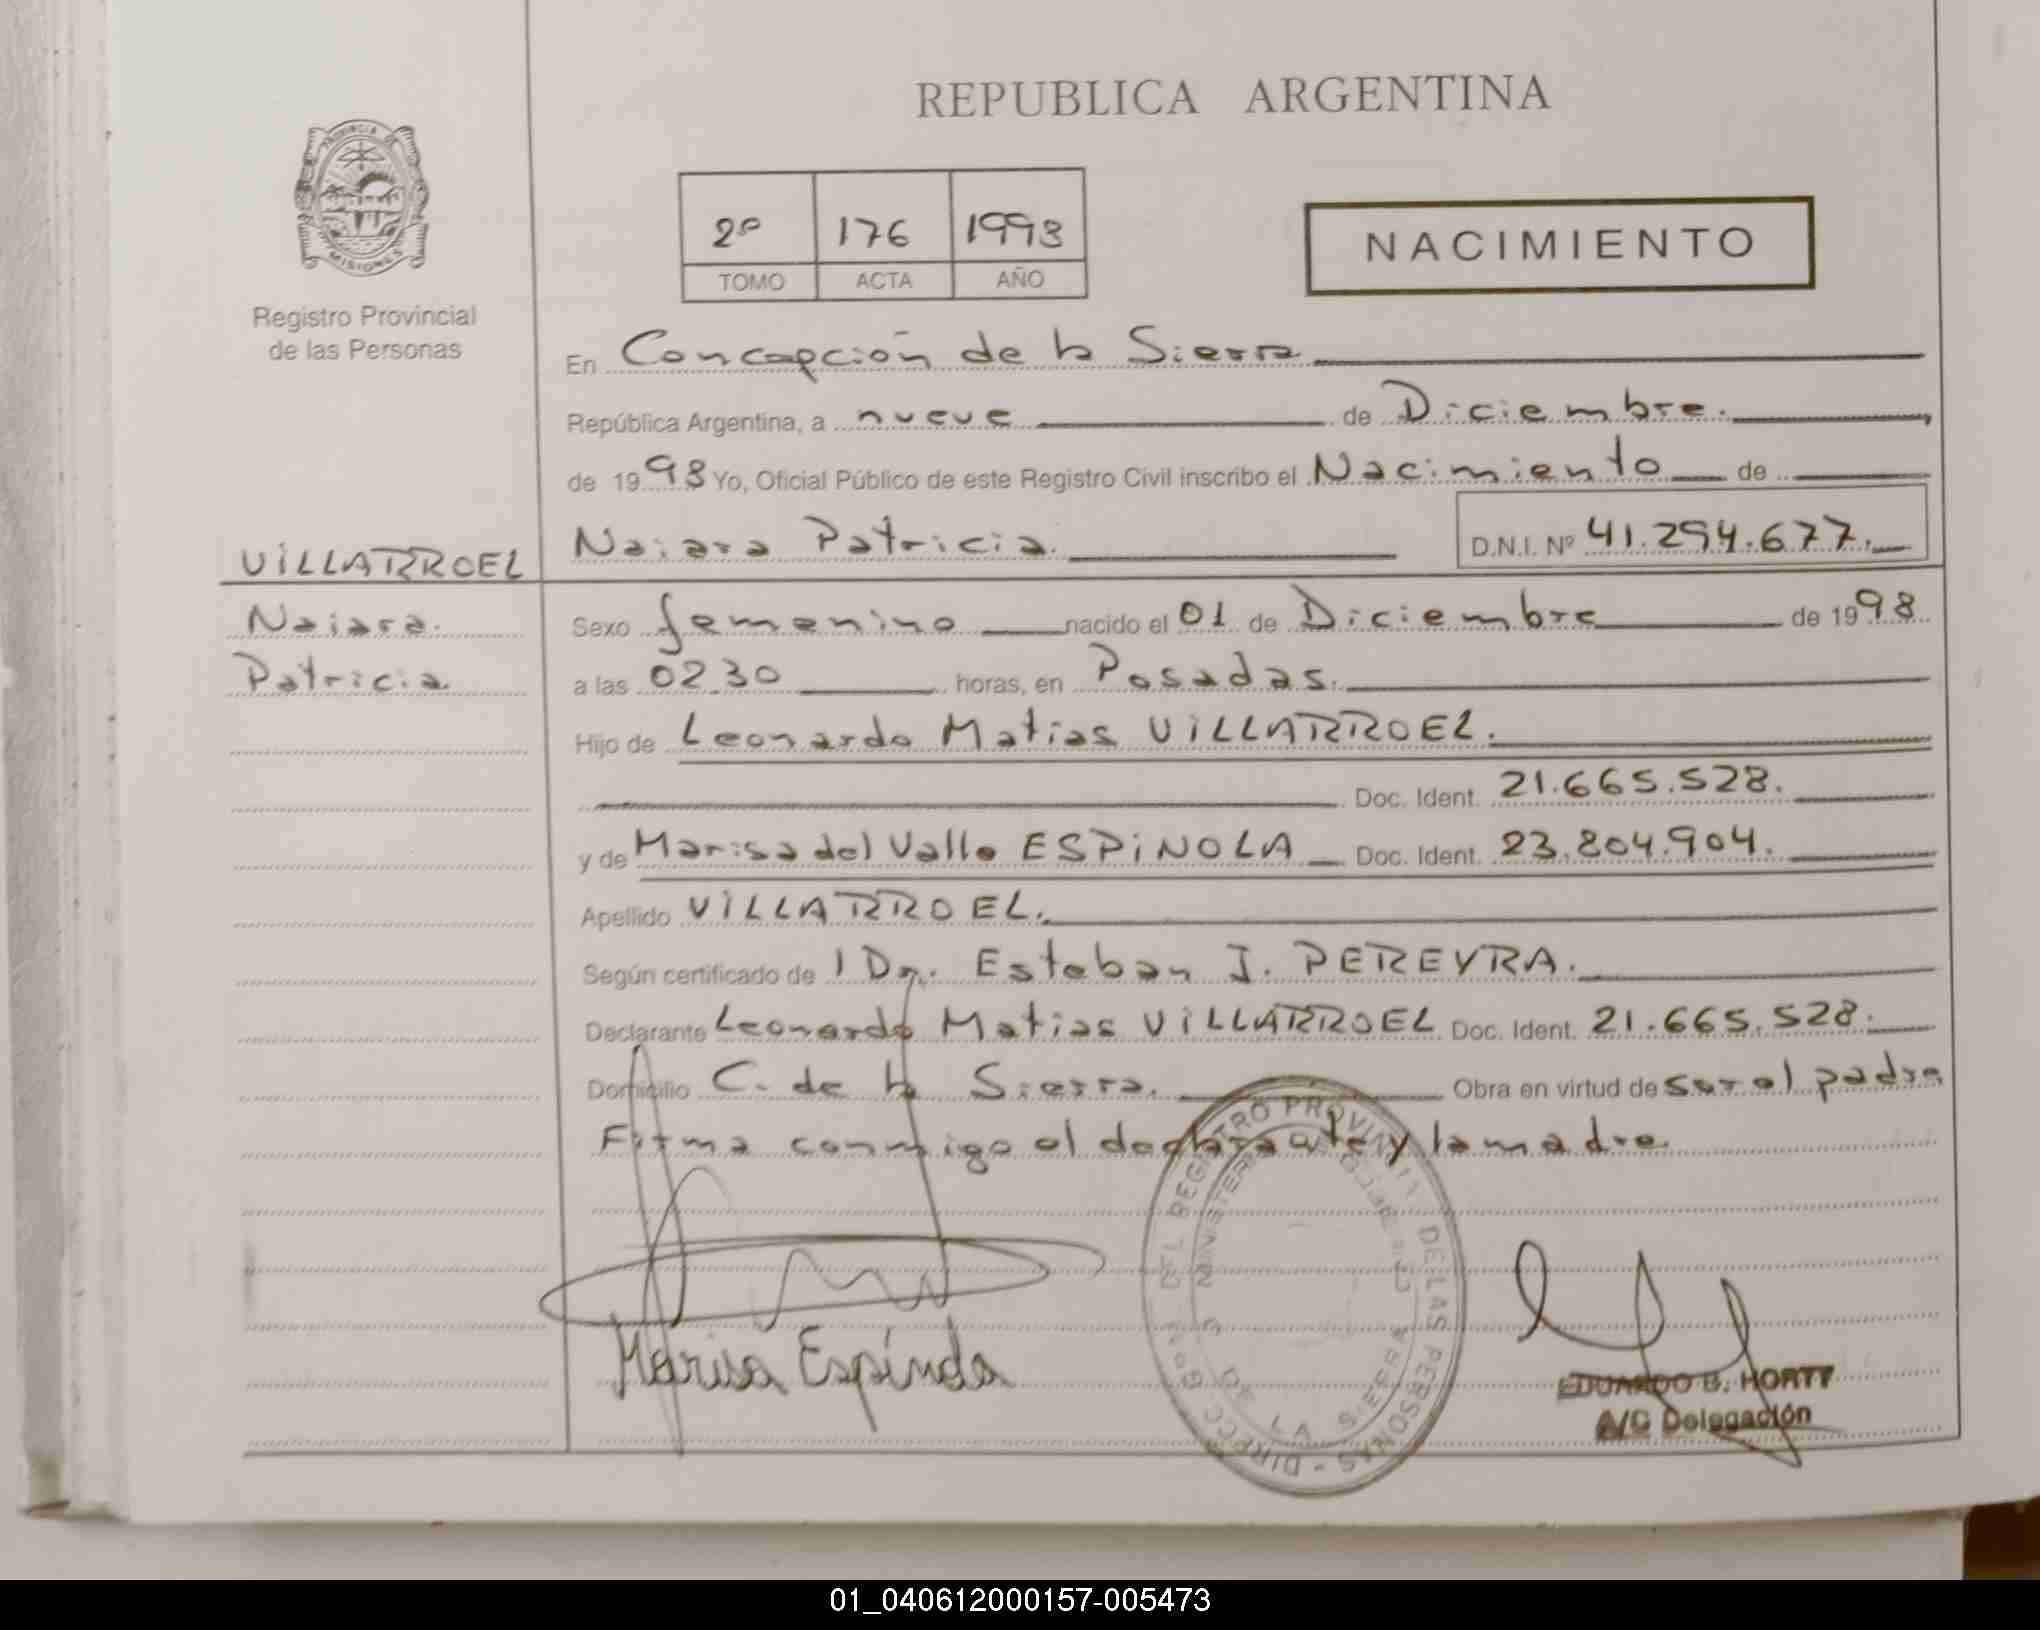 REPUBLICA ARGENTINA
PROVINCIA DE
MISIONES
Registro Provincial
de las Personas
2º 176 1998
TOMO ACTA AÑO
NACIMIENTO
En Concepción de la Sierra
República Argentina, a nueve de Diciembre.
de 1998 Yo, Oficial Público de este Registro Civil inscribo el Nacimiento de
VILLARROEL
Naiara Patricia. D.N.I. Nº 41.294.677.
Naiara
Patricia
Sexo femenino nacido el 01 de Diciembre de 1998
a las 02.30 horas, en Posadas.
Hijo de Leonardo Matias VILLARROEL.
Doc. Ident. 21.665.528.
y de Marisa del Valle ESPINOLA Doc. Ident. 23.804.904.
Apellido VILLARROEL.
Según certificado de Dr. Esteban J. PEREYRA.
Declarante Leonardo Matias VILLARROEL Doc. Ident. 21.665.528.
Domicilio C. de la Sierra. Obra en virtud de ser el padre
Firma conmigo el declarante y la madre.
Marisa Espínola
DEL REGISTRO PROVINCIAL DE LAS PERSONAS - DIRECC
DE LA SIERRA
EDUARDO B. HORTT
A/C Delegación
01_040612000157-005473